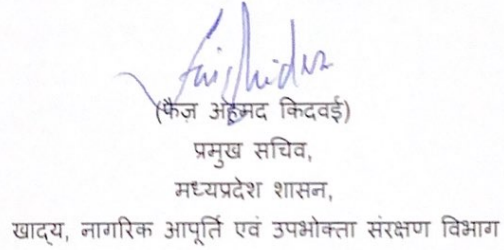 (फैज़ अहमद किदवई)
प्रमुख सचिव,
मध्यप्रदेश शासन,
खाद्य, नागरिक आपूर्ति एवं उपभोक्ता संरक्षण विभाग